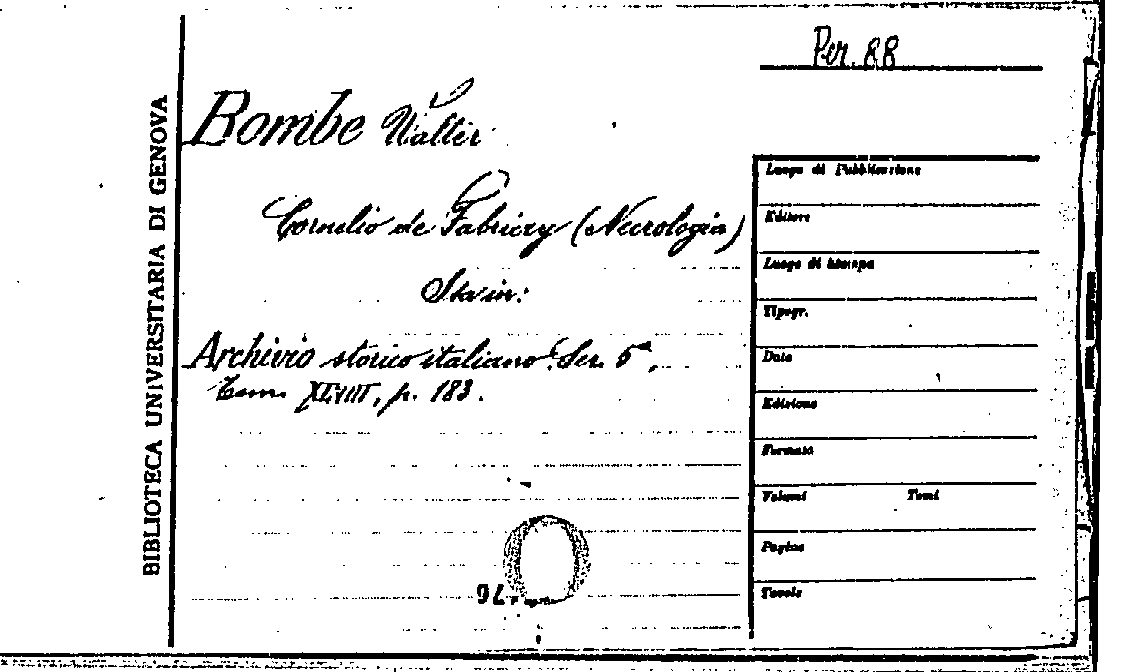 Per. 88
BIBLIOTECA UNIVERSITARIA DI GENOVA
Bombe Walter
Cornelio de Fabriczy (Necrologia)
Sta in:
Archivio storico italiano. Ser. 5ª,
Tom. XLVIII, p. 183.
Luogo di Pubblicazione
Editore
Luogo di stampa
Tipogr.
Data
Edizione
Formato
Volumi Tomi
Pagine
Tavole